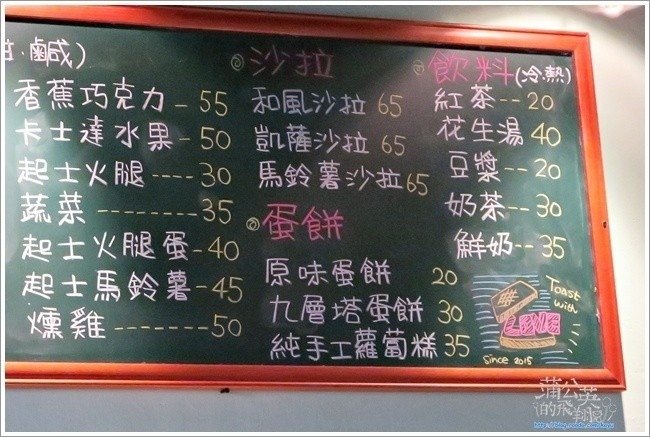 鹹)
香蕉巧克力 - 55
卡士達水果 - 50
起士火腿 ---- 30
蔬菜 -------- 35
起士火腿蛋 - 40
起士馬鈴薯 - 45
燻雞 ------- 50
沙拉
和風沙拉 65
凱薩沙拉 65
馬鈴薯沙拉 65
蛋餅
原味蛋餅 20
九層塔蛋餅 30
純手工蘿蔔糕 35
飲料(冷.熱)
紅茶 -- 20
花生湯 40
豆漿 -- 20
奶茶 -- 30
鮮奶 -- 35
Toast
with
Since 2015
蒲公英
的飛翔